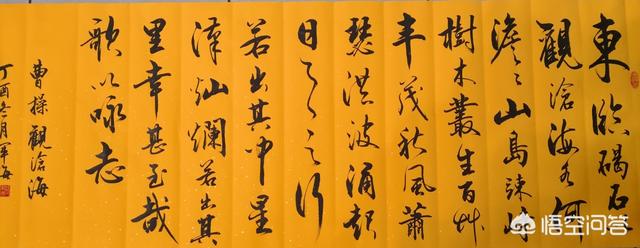 東臨碣石
觀滄海水何
澹〻山島竦峙
樹木叢生百艸
丰茂秋風蕭
瑟洪波涌起
日月之行
若出其中星
漢灿爛若出其
里幸甚至哉
歌以咏志
曹操觀滄海
丁酉冬月軍海
悟空问答